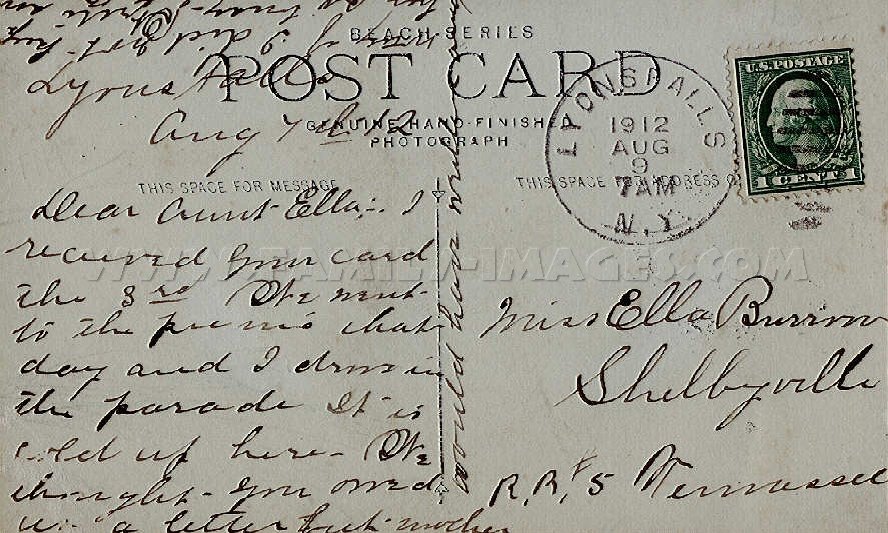 BEACH SERIES
POST CARD
GENUINE HAND-FINISHED
PHOTOGRAPH
THIS SPACE FOR MESSAGE
THIS SPACE FOR ADDRESS O
Lyons Falls
Aug 7 th 12
Dear Aunt Ella,. I
received your card
the 3rd We went
to the picnic that
day and I drove in
the parade It is
cold up here. We
thought you owed
us a letter but mother
would have
LYONS FALLS
1912
AUG
9
7 AM
N.Y.
U.S. POSTAGE
1 CENT 1
Miss Ella Burrow
Shelbyville
R.R. # 5 Tennessee
WWW.FAMILY-IMAGES.COM